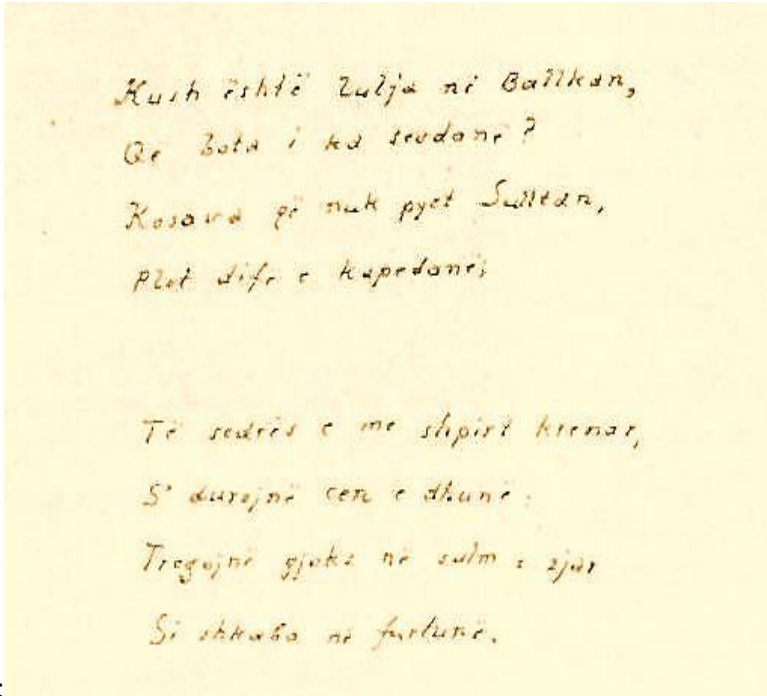 Kush është lulja në Ballkan,
Qe bota i ka sevdanë?
Kosova që nuk pyet Sulltan,
Plot dife e kapedanë;
Të sedrës e me shpirt krenar,
S' durojnë cen e dhunë.
Tregojnë gjoks në sulm e zjar
Si shkaba në furtunë.